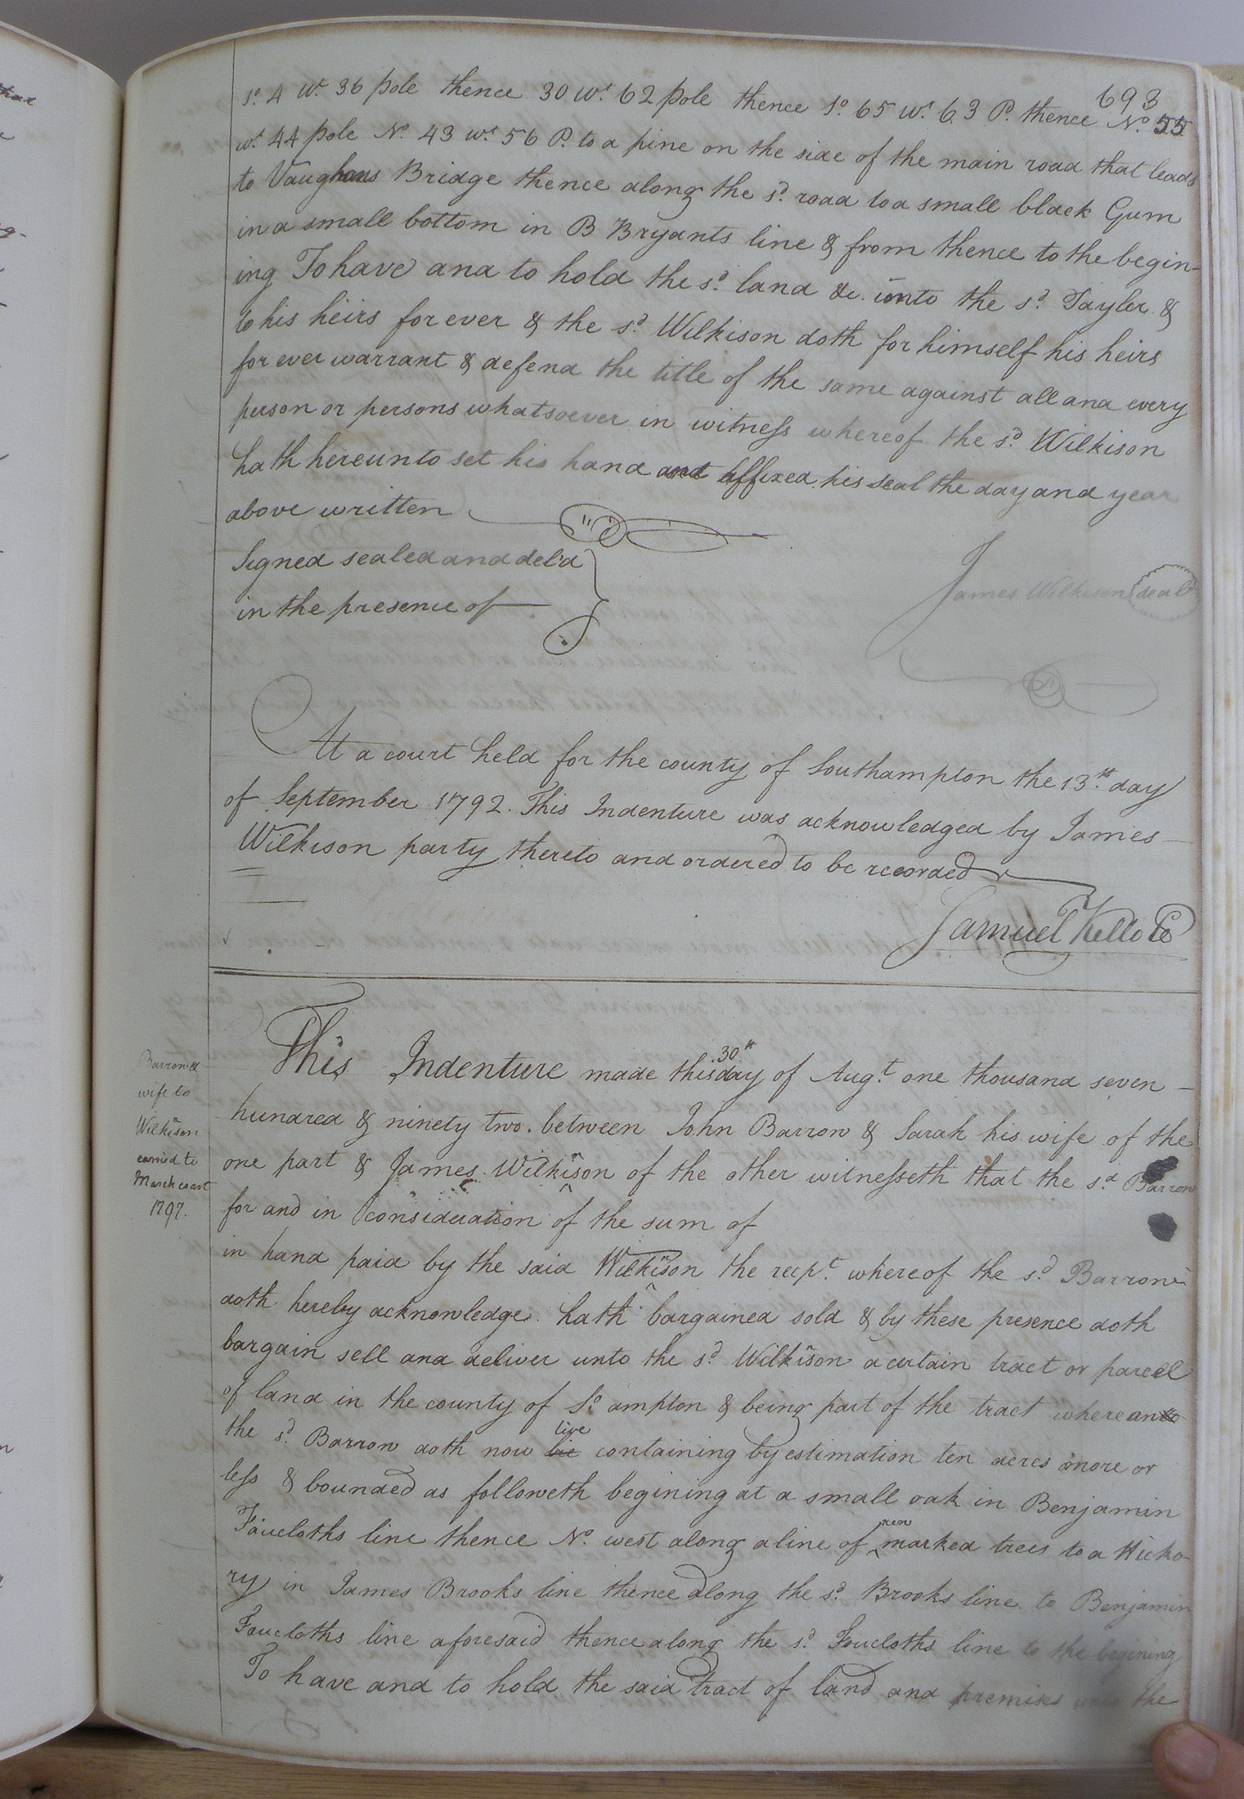 693
So. 4 Wt. 36 pole thence 30 Wt. 62 pole thence So 65 Wt. 63 P. thence No. 55
Wt. 44 pole No. 43 Wt. 56 P. to a pine on the side of the main road that leads
to Vaughans Bridge thence along the sd. road to a small black Gum
in a small bottom in B Bryants line & from thence to the begin-
ing To have and to hold the sd. land &c. unto the sd. Tayler &
to his heirs for ever & the sd. Wilkison doth for himself his heirs
for ever warrant & defend the title of the same against all and every
person or persons whatsoever in witness whereof the sd. Wilkison
hath hereunto set his hand and affixed his seal the day and year
above written
Signed sealed and del'd
in the presence of
James Wilkison seal
At a court held for the county of Southampton the 13th. day
of September 1792. This Indenture was acknowledged by James
Wilkison party thereto and ordered to be recorded
Samuel Kello CC
Barrow &
wife to
Wilkison
carried to
March court
1797.
This Indenture made this 30th day of Augt. one thousand seven
hundred & ninety two. between John Barrow & Sarah his wife of the
one part & James Wilkison of the other witnesseth that the sd Barrow
for and in Consideration of the sum of
in hand paid by the said Wilkison the recpt. whereof the sd Barrow
doth hereby acknowledge. hath bargained sold & by these presence doth
bargain sell and deliver unto the sd Wilkison a certain tract or parcel
of land in the county of So ampton & being part of the tract where
the sd. Barrow doth now lie live containing by estimation ten acres more or
less & bounded as followeth begining at a small oak in Benjamin
Faircloths line thence No. west along a line of new marked trees to a Hicko-
ry in James Brooks line thence along the sd. Brooks line to Benjamin
Faircloths line aforesaid thence along the sd. Faircloths line to the begining
To have and to hold the said tract of land and premises unto the